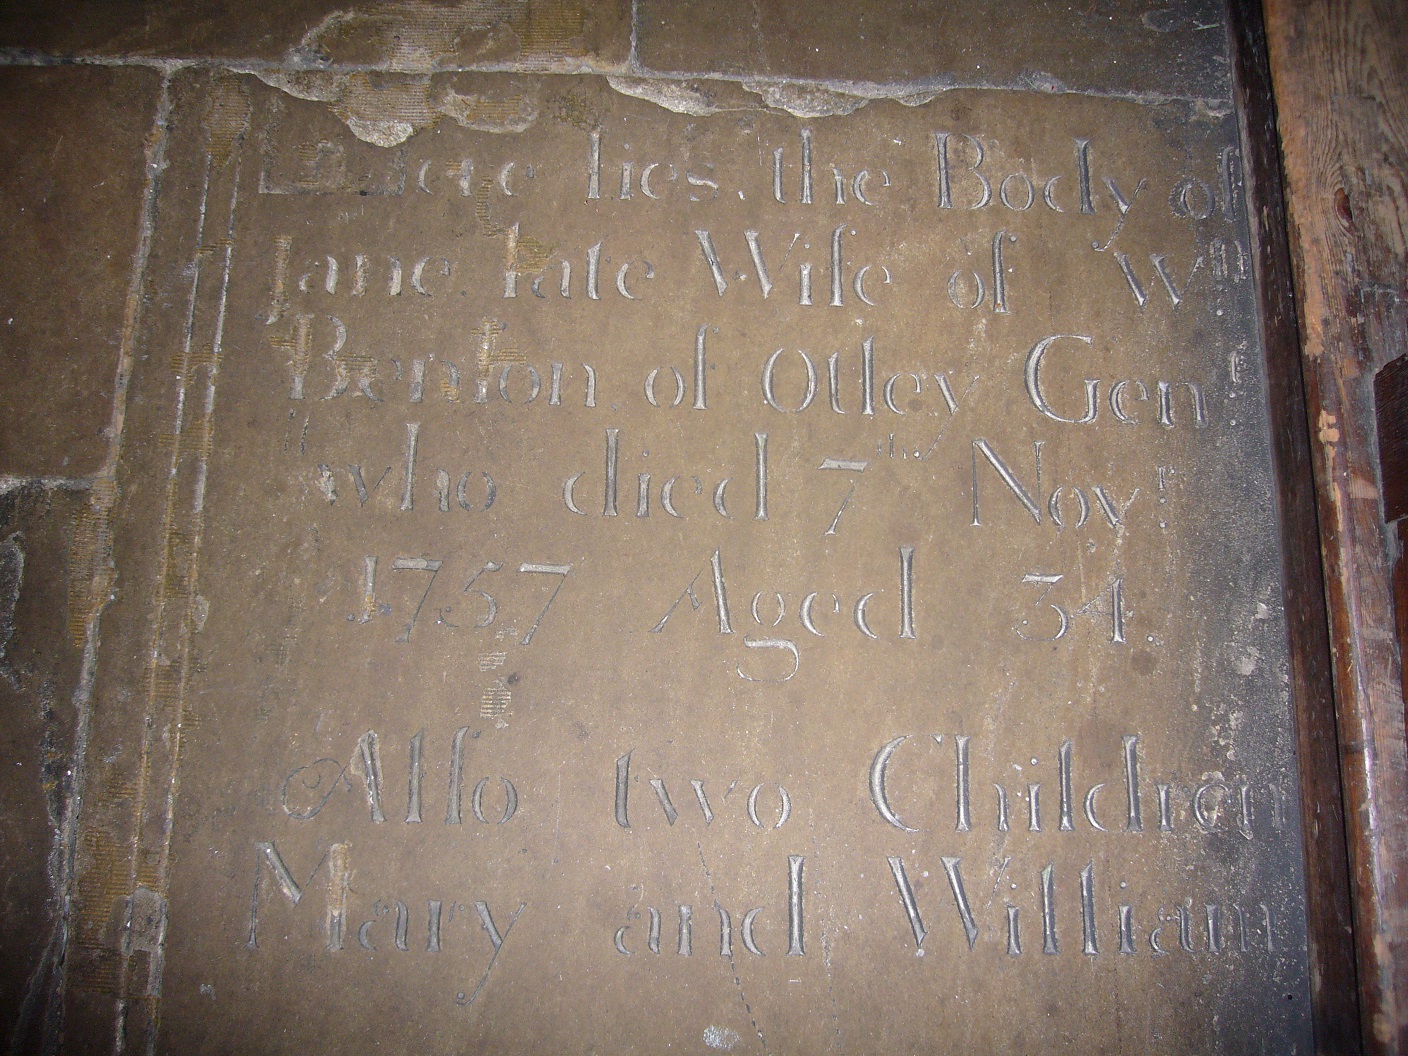 Here lies the Body of
Jane late Wife of Wm
Benton of Otley Gent
who died 7th Novr
1757 Aged 34.
Alſo two Children
Mary and William